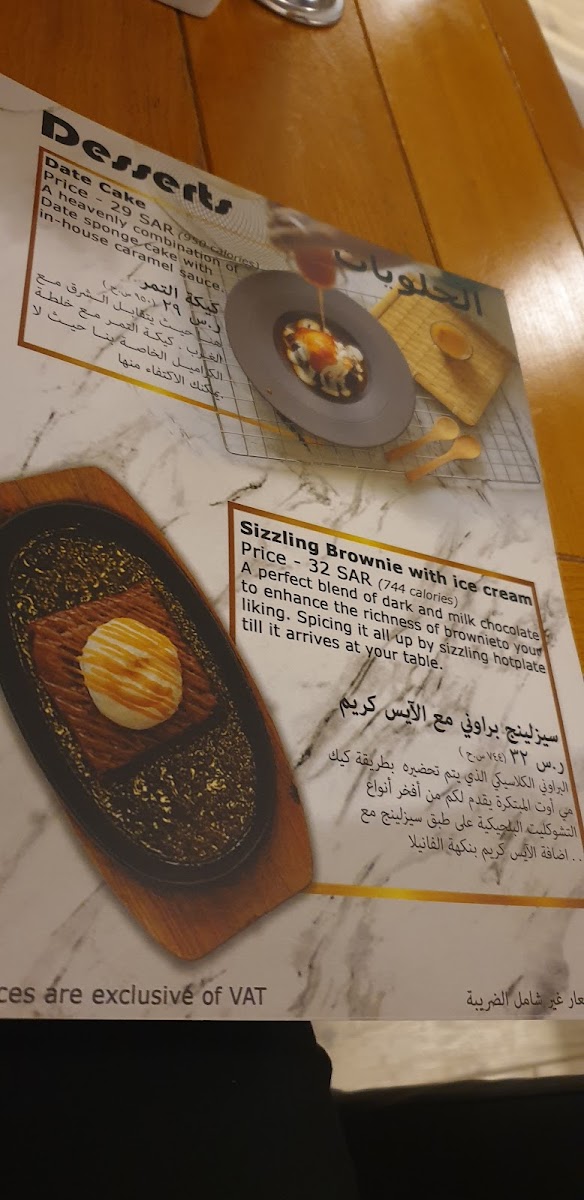 Desserts
الحلويات
Date Cake
Price - 29 SAR (950 calories)
A heavenly combination of
Date sponge cake with
in-house caramel sauce.
كيكة التمر
ر.س ٢٩ (٩٥٠ س.ح)
هنا حيث يتقابل الشرق مع
الغرب : كيكة التمر مع خلطة
الكراميل الخاصة بنا حيث لا
يمكنك الاكتفاء منها
Sizzling Brownie with ice cream
Price - 32 SAR (744 calories)
A perfect blend of dark and milk chocolate
to enhance the richness of brownieto your
liking. Spicing it all up by sizzling hotplate
till it arrives at your table.
سيزلينج براوني مع الآيس كريم
ر.س ٣٢ (٧٤٤ س.ح)
البراوني الكلاسيكي الذي يتم تحضيره بطريقة كيك
مي أوت المبتكرة يقدم لكم من أفخر أنواع
التشوكليت البلجيكية على طبق سيزلينج مع
اضافة الآيس كريم بنكهة الفانيلا . .
ces are exclusive of VAT
عار غير شامل الضريبة